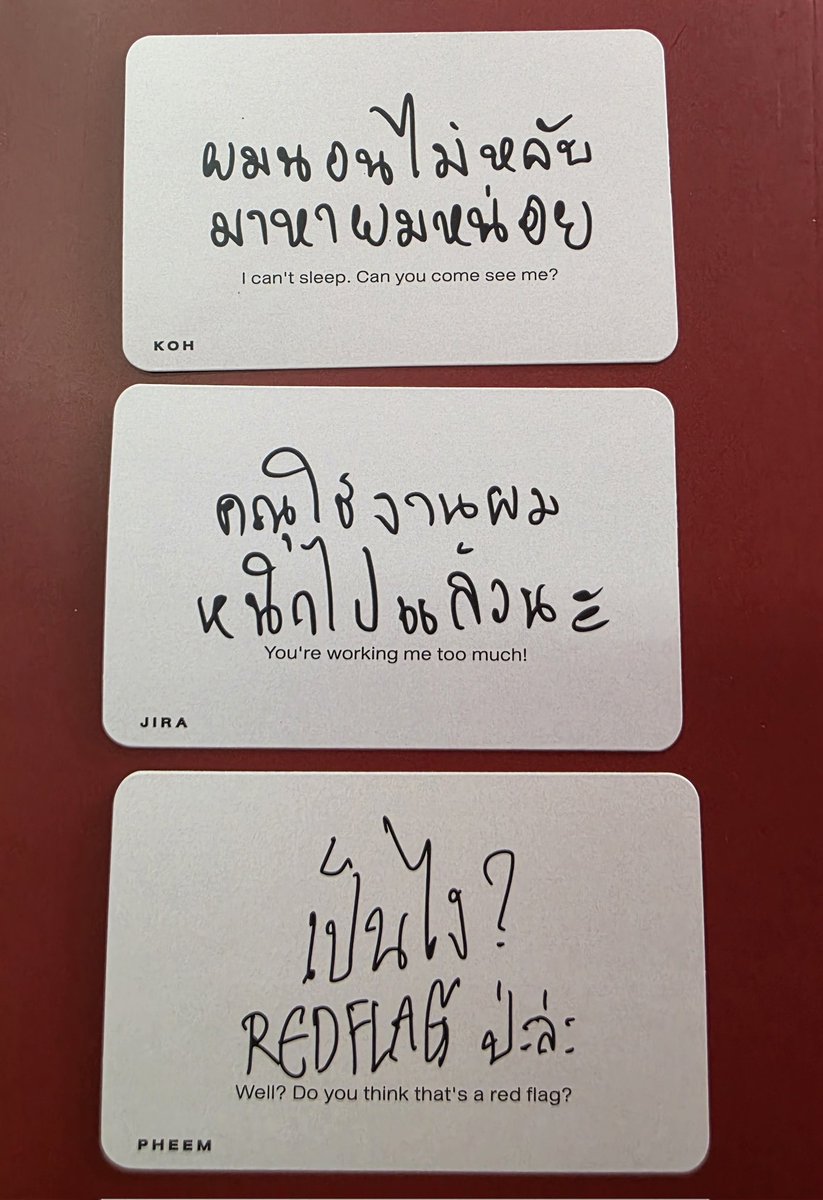 ผมนอนไม่หลับ
มาหาผมหน่อย
I can't sleep. Can you come see me?
KOH
คุณใช้งานผม
หนักไปแล้วนะ
You're working me too much!
JIRA
เป็นไง?
RED FLAG ป่ะล่ะ
Well? Do you think that's a red flag?
PHEEM